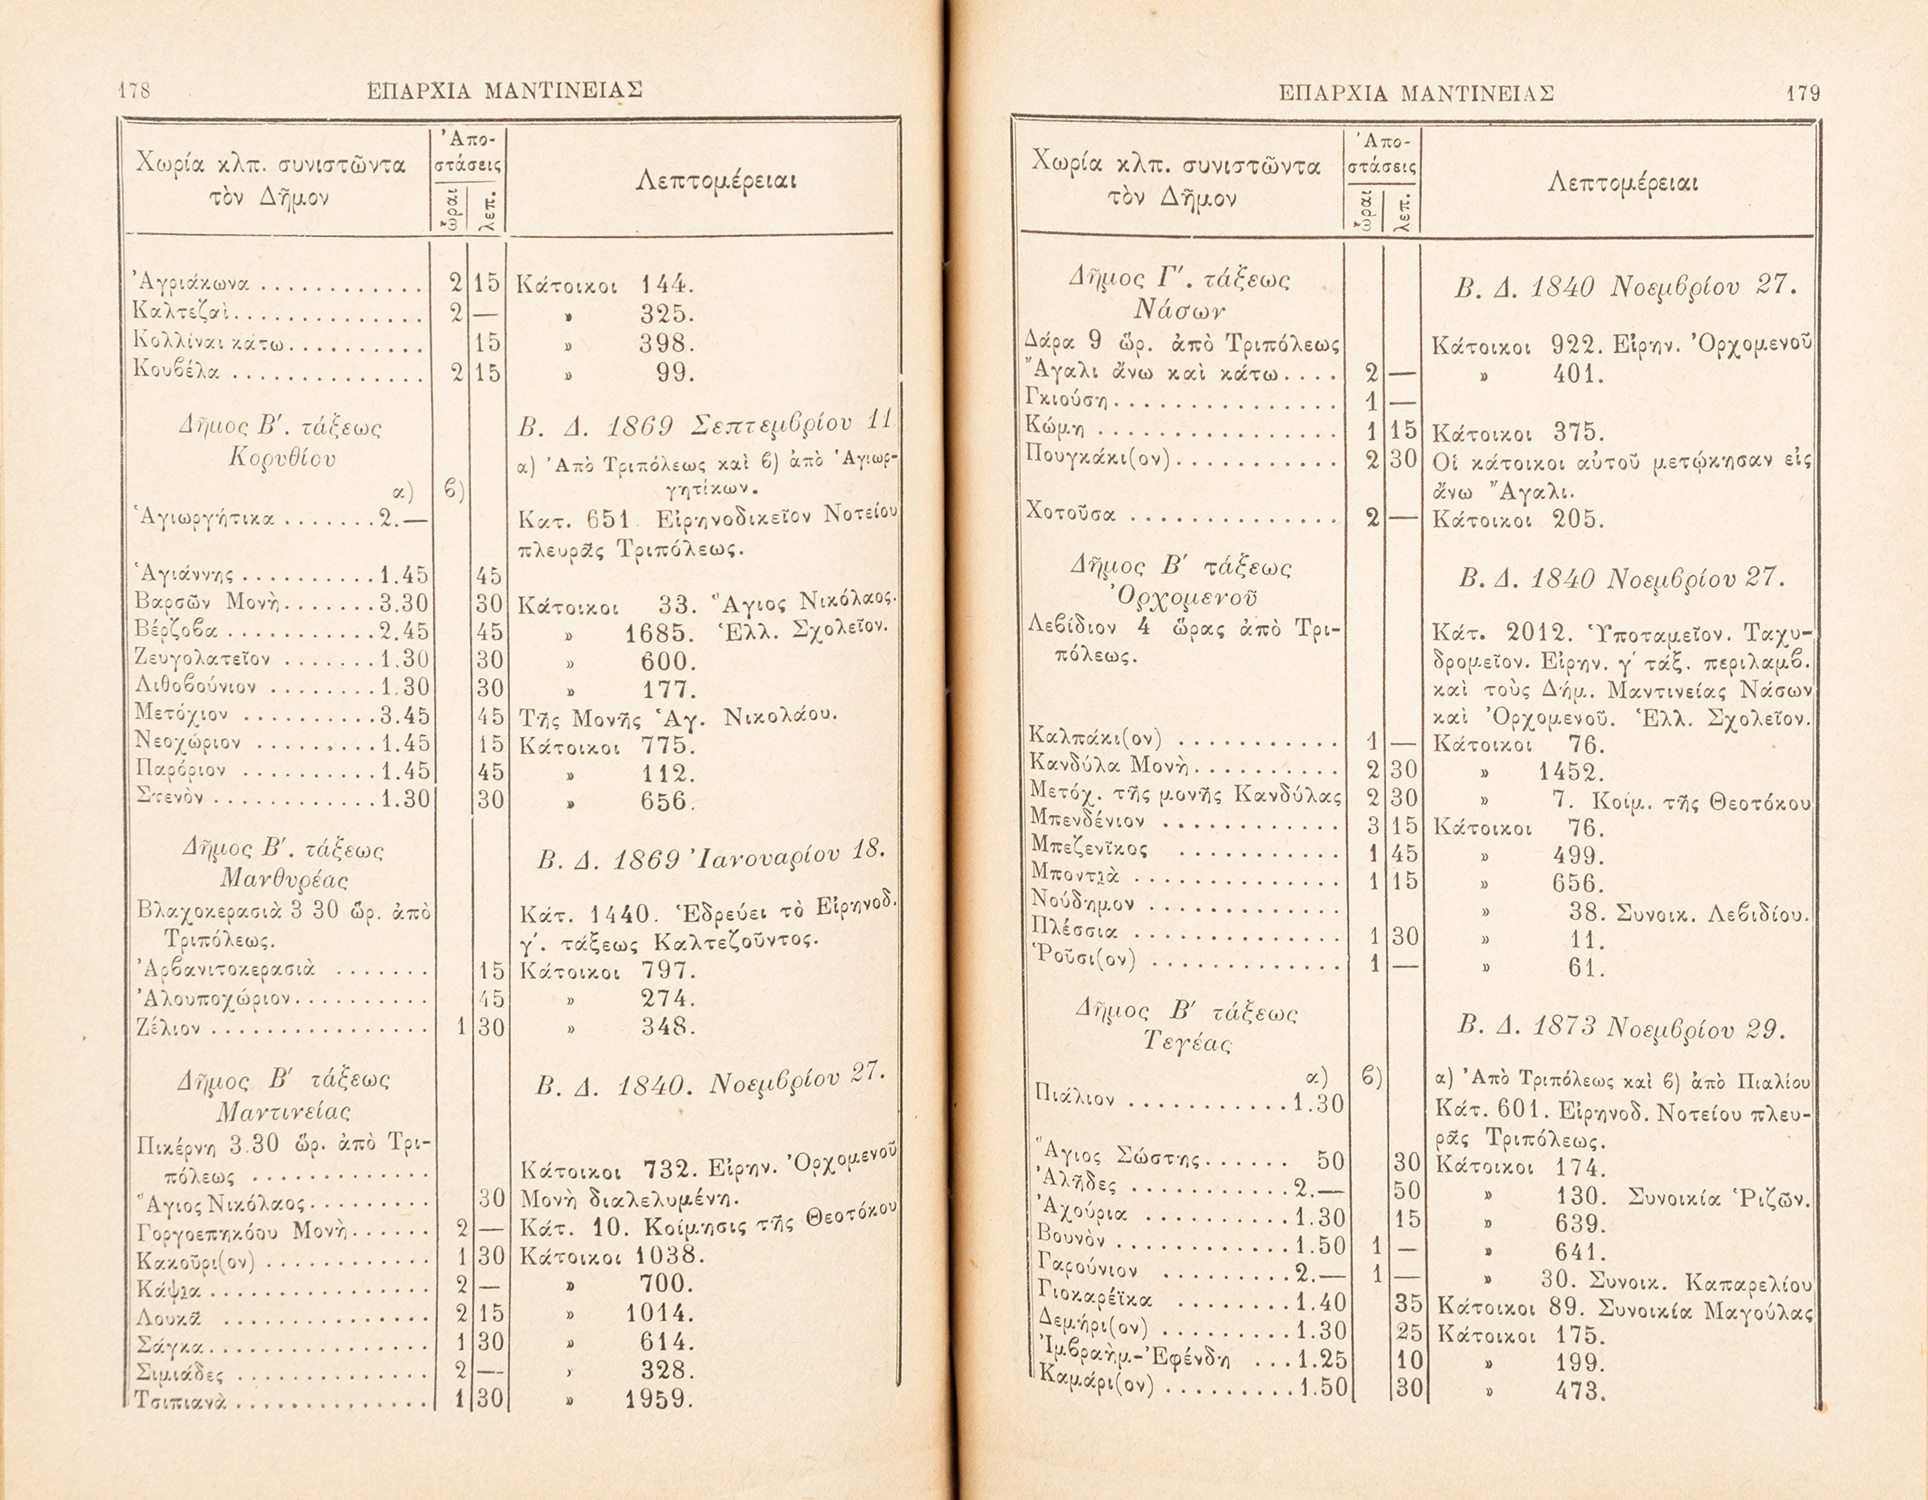 178 ΕΠΑΡΧΙΑ ΜΑΝΤΙΝΕΙΑΣ
Χωρία κλπ. συνιστῶντα τὸν Δῆμον | Ἀποστάσεις ὧραι λεπ. | Λεπτομέρειαι
Ἀγριάκωνα . . . . 2 15 Κάτοικοι 144.
Καλτεζαὶ . . . . 2 — » 325.
Κολλίναι κάτω . . . . 15 » 398.
Κουβέλα . . . . 2 15 » 99.
Δῆμος Β΄. τάξεως Β. Δ. 1869 Σεπτεμβρίου 11
Κορυθίου α) Ἀπὸ Τριπόλεως καὶ β) ἀπὸ Ἁγιωρ-
α) β) γητίκων.
Ἁγιωργήτικα . . . . 2.— Κατ. 651 Εἰρηνοδικεῖον Νοτείου
πλευρᾶς Τριπόλεως.
Ἁγιάννης . . . . 1.45 45
Βαρσῶν Μονὴ . . . . 3.30 30 Κάτοικοι 33. Ἅγιος Νικόλαος.
Βέρζοβα . . . . 2.45 45 » 1685. Ἑλλ. Σχολεῖον.
Ζευγολατεῖον . . . . 1.30 30 » 600.
Λιθοβούνιον . . . . 1.30 30 » 177.
Μετόχιον . . . . 3.45 45 Τῆς Μονῆς Ἁγ. Νικολάου.
Νεοχώριον . . . . 1.45 15 Κάτοικοι 775.
Παρόριον . . . . 1.45 45 » 112.
Στενὸν . . . . 1.30 30 » 656.
Δῆμος Β΄. τάξεως Β. Δ. 1869 Ἰανουαρίου 18.
Μανθυρέας
Βλαχοκερασιὰ 3 30 ὥρ. ἀπὸ Κάτ. 1440. Ἑδρεύει τὸ Εἰρηνοδ.
Τριπόλεως. γ΄. τάξεως Καλτεζοῦντος.
Ἀρβανιτοκερασιὰ . . . . 15 Κάτοικοι 797.
Ἀλουποχώριον . . . . 45 » 274.
Ζέλιον . . . . 1 30 » 348.
Δῆμος Β΄ τάξεως Β. Δ. 1840. Νοεμβρίου 27.
Μαντινείας
Πικέρνη 3.30 ὥρ. ἀπὸ Τρι-
πόλεως . . . . Κάτοικοι 732. Εἰρην. Ὀρχομενοῦ
Ἅγιος Νικόλαος . . . . 30 Μονὴ διαλελυμένη.
Γοργοεπηκόου Μονὴ . . . . 2 — Κάτ. 10. Κοίμησις τῆς Θεοτόκου
Κακοῦρι(ον) . . . . 1 30 Κάτοικοι 1038.
Κάψια . . . . 2 — » 700.
Λουκᾶ . . . . 2 15 » 1014.
Σάγκα . . . . 1 30 » 614.
Σιμιάδες . . . . 2 — » 328.
Τσιπιανὰ . . . . 1 30 » 1959.
ΕΠΑΡΧΙΑ ΜΑΝΤΙΝΕΙΑΣ 179
Χωρία κλπ. συνιστῶντα τὸν Δῆμον | Ἀποστάσεις ὧραι λεπ. | Λεπτομέρειαι
Δῆμος Γ΄. τάξεως Β. Δ. 1840 Νοεμβρίου 27.
Νάσων
Δάρα 9 ὥρ. ἀπὸ Τριπόλεως Κάτοικοι 922. Εἰρην. Ὀρχομενοῦ
Ἄγαλι ἄνω καὶ κάτω . . . . 2 — » 401.
Γκιούση . . . . 1 —
Κώμη . . . . 1 15 Κάτοικοι 375.
Πουγκάκι(ον) . . . . 2 30 Οἱ κάτοικοι αὐτοῦ μετῴκησαν εἰς
ἄνω Ἄγαλι.
Χοτοῦσα . . . . 2 — Κάτοικοι 205.
Δῆμος Β΄ τάξεως Β. Δ. 1840 Νοεμβρίου 27.
Ὀρχομενοῦ
Λεβίδιον 4 ὥρας ἀπὸ Τρι- Κάτ. 2012. Ὑποταμεῖον. Ταχυ-
πόλεως. δρομεῖον. Εἰρην. γ΄ τάξ. περιλαμβ.
καὶ τοὺς Δήμ. Μαντινείας Νάσων
καὶ Ὀρχομενοῦ. Ἑλλ. Σχολεῖον.
Καλπάκι(ον) . . . . 1 — Κάτοικοι 76.
Κανδύλα Μονὴ . . . . 2 30 » 1452.
Μετόχ. τῆς μονῆς Κανδύλας 2 30 » 7. Κοίμ. τῆς Θεοτόκου
Μπενδένιον . . . . 3 15 Κάτοικοι 76.
Μπεζενῖκος . . . . 1 45 » 499.
Μποντιὰ . . . . 1 15 » 656.
Νούδημον . . . . » 38. Συνοικ. Λεβιδίου.
Πλέσσια . . . . 1 30 » 11.
Ῥοῦσι(ον) . . . . 1 — » 61.
Δῆμος Β΄ τάξεως Β. Δ. 1873 Νοεμβρίου 29.
Τεγέας
α) β) α) Ἀπὸ Τριπόλεως καὶ β) ἀπὸ Πιαλίου
Πιάλιον . . . . 1.30 Κάτ. 601. Εἰρηνοδ. Νοτείου πλευ-
ρᾶς Τριπόλεως.
Ἅγιος Σώστης . . . . 50 30 Κάτοικοι 174.
Ἀλῆδες . . . . 2.— 50 » 130. Συνοικία Ῥιζῶν.
Ἀχούρια . . . . 1.30 15 » 639.
Βουνὸν . . . . 1.50 1 — » 641.
Γαρούνιον . . . . 2.— 1 — » 30. Συνοικ. Καπαρελίου
Γιοκαρέϊκα . . . . 1.40 35 Κάτοικοι 89. Συνοικία Μαγούλας
Δεμήρι(ον) . . . . 1.30 25 Κάτοικοι 175.
Ἰμβραὴμ-Ἐφένδη . . . 1.25 10 » 199.
Καμάρι(ον) . . . . 1.50 30 » 473.